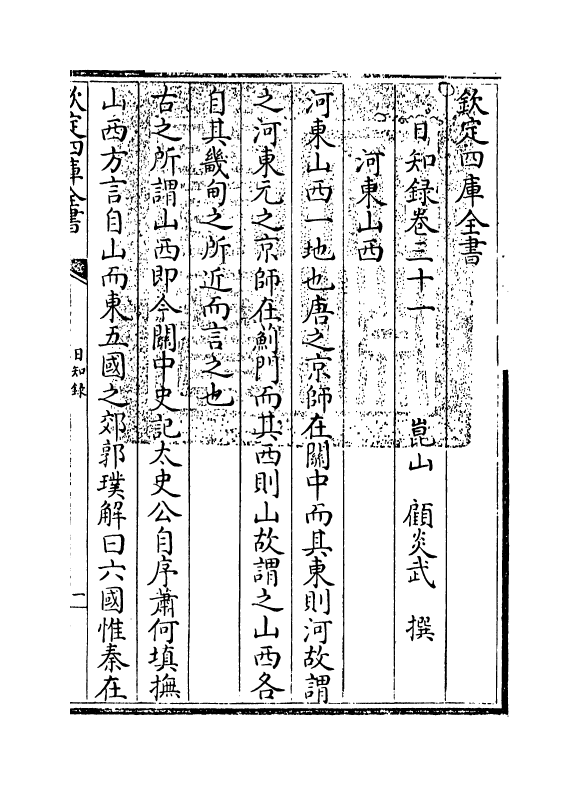 欽定四庫全書
日知録卷三十一 崑山 顧炎武 撰
河東山西
河東山西一地也唐之京師在關中而其東則河故謂
之河東元之京師在薊門而其西則山故謂之山西各
自其畿甸之所近而言之也
古之所謂山西即今關中史記太史公自序蕭何填撫
山西方言自山而東五國之郊郭璞解曰六國惟秦在
欽定四庫全書
日知録